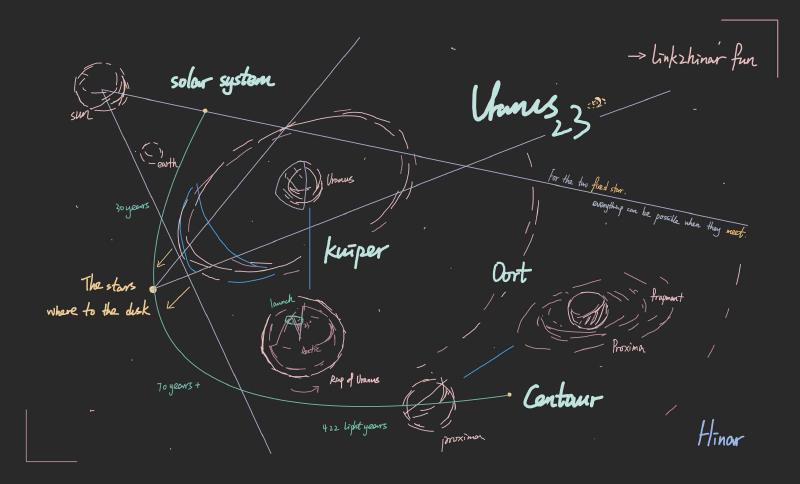 → linkzhinar fun
solar system
Uranus 23
sun
earth
Uranus
For the two fixed star.
everything can be possible when they meet.
30 years
kuiper
Oort
The stars
where to the desk
launch
Arctic
Map of Uranus
fragment
Proxima
70 years +
Centaur
422 light years
proxima
Hinar